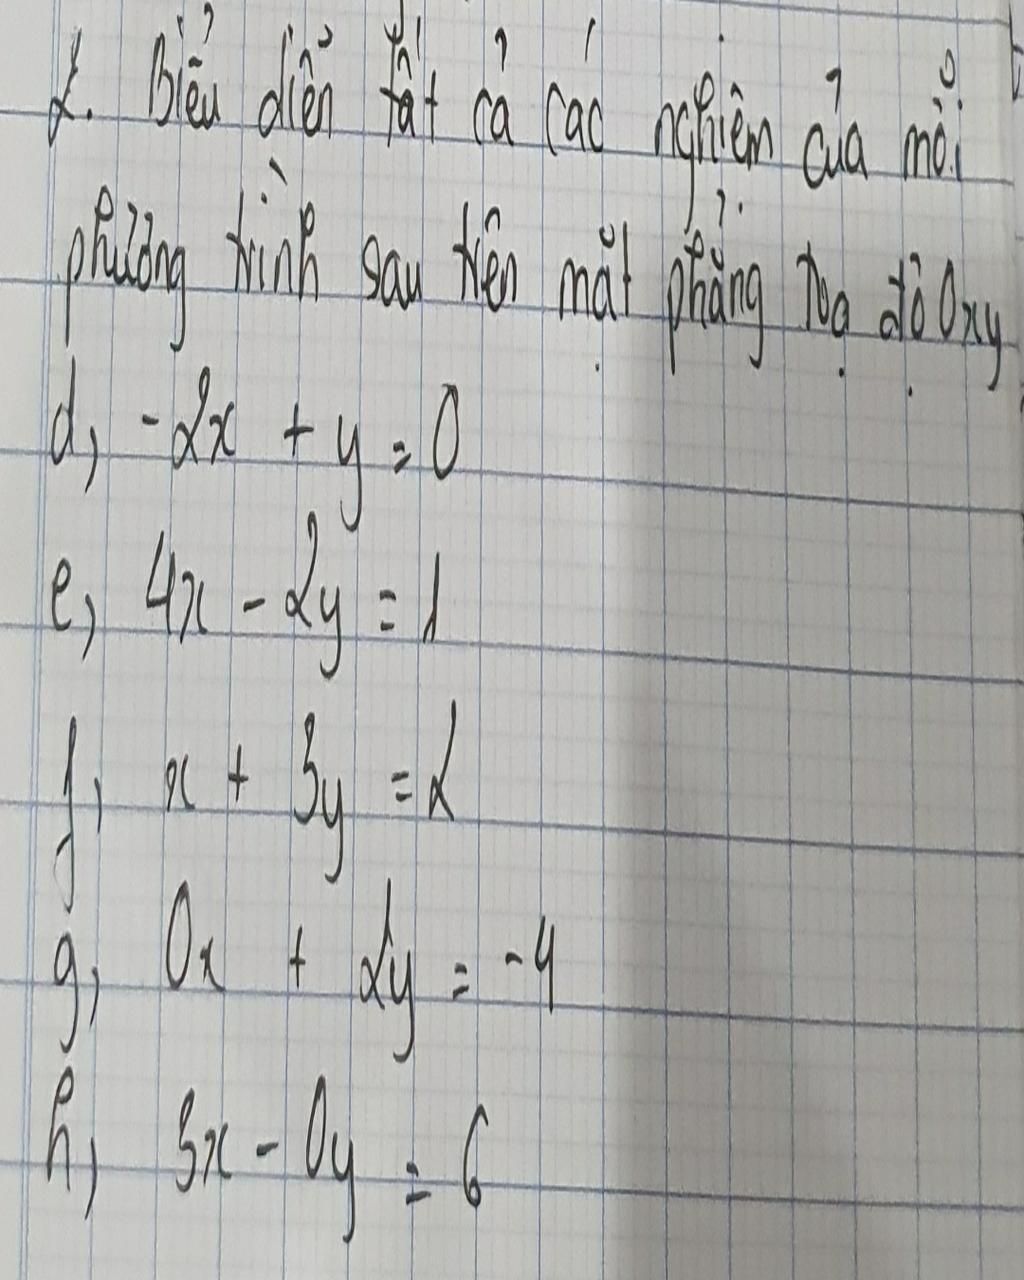 2. Biểu diễn tất cả các nghiệm của mỗi
phương trình sau trên mặt phẳng tọa độ Oxy
d, -2x + y = 0
e, 4x - 2y = 1
f, x + 3y = 2
g, 0x + 2y = -4
h, 3x - 0y = 6